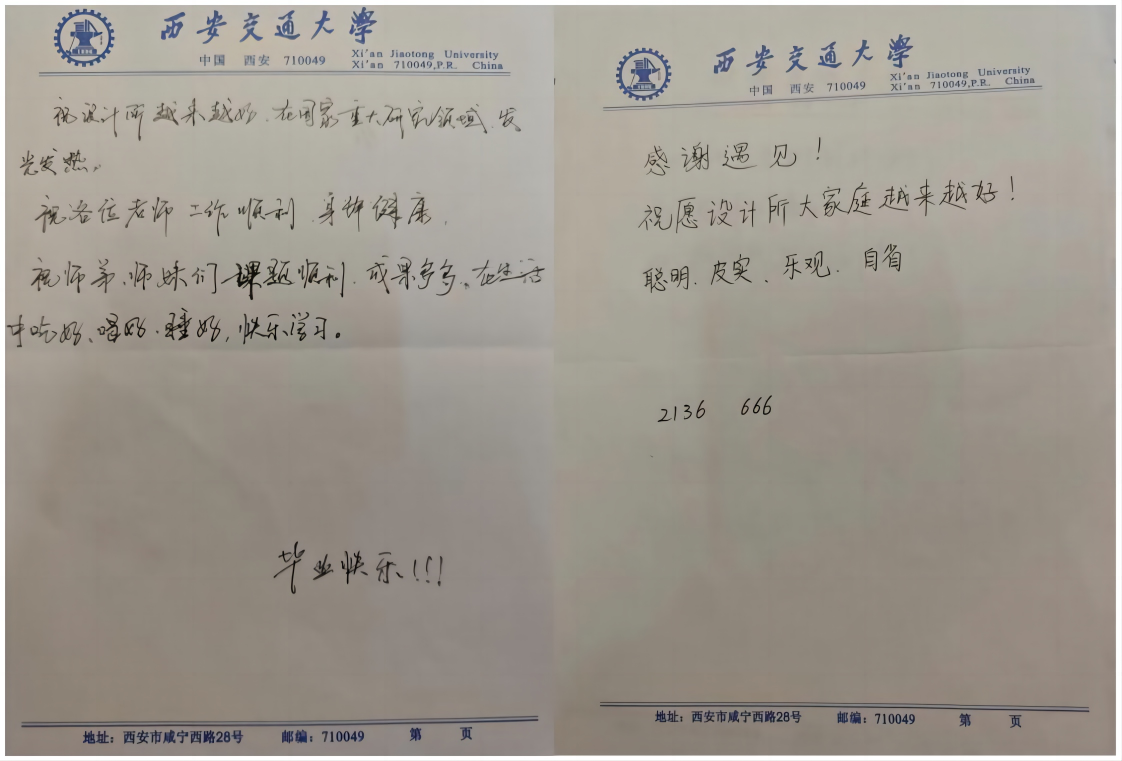 西安交通大學
中国 西安 710049
Xi'an Jiaotong University
Xi'an 710049,P.R. China
祝设计所越来越好、在国家重大研究领域、发
光发热。
祝各位老师工作顺利、身体健康、
祝师弟、师妹们课题顺利、成果多多、在生活
中吃好、喝好、睡好,快乐学习。
毕业快乐!!!
地址:西安市咸宁西路28号 邮编:710049 第 页
西安交通大學
中国 西安 710049
Xi'an Jiaotong University
Xi'an 710049,P.R. China
感谢遇见!
祝愿设计所大家庭越来越好!
聪明、皮实、乐观、自省
2136 666
地址:西安市咸宁西路28号 邮编:710049 第 页